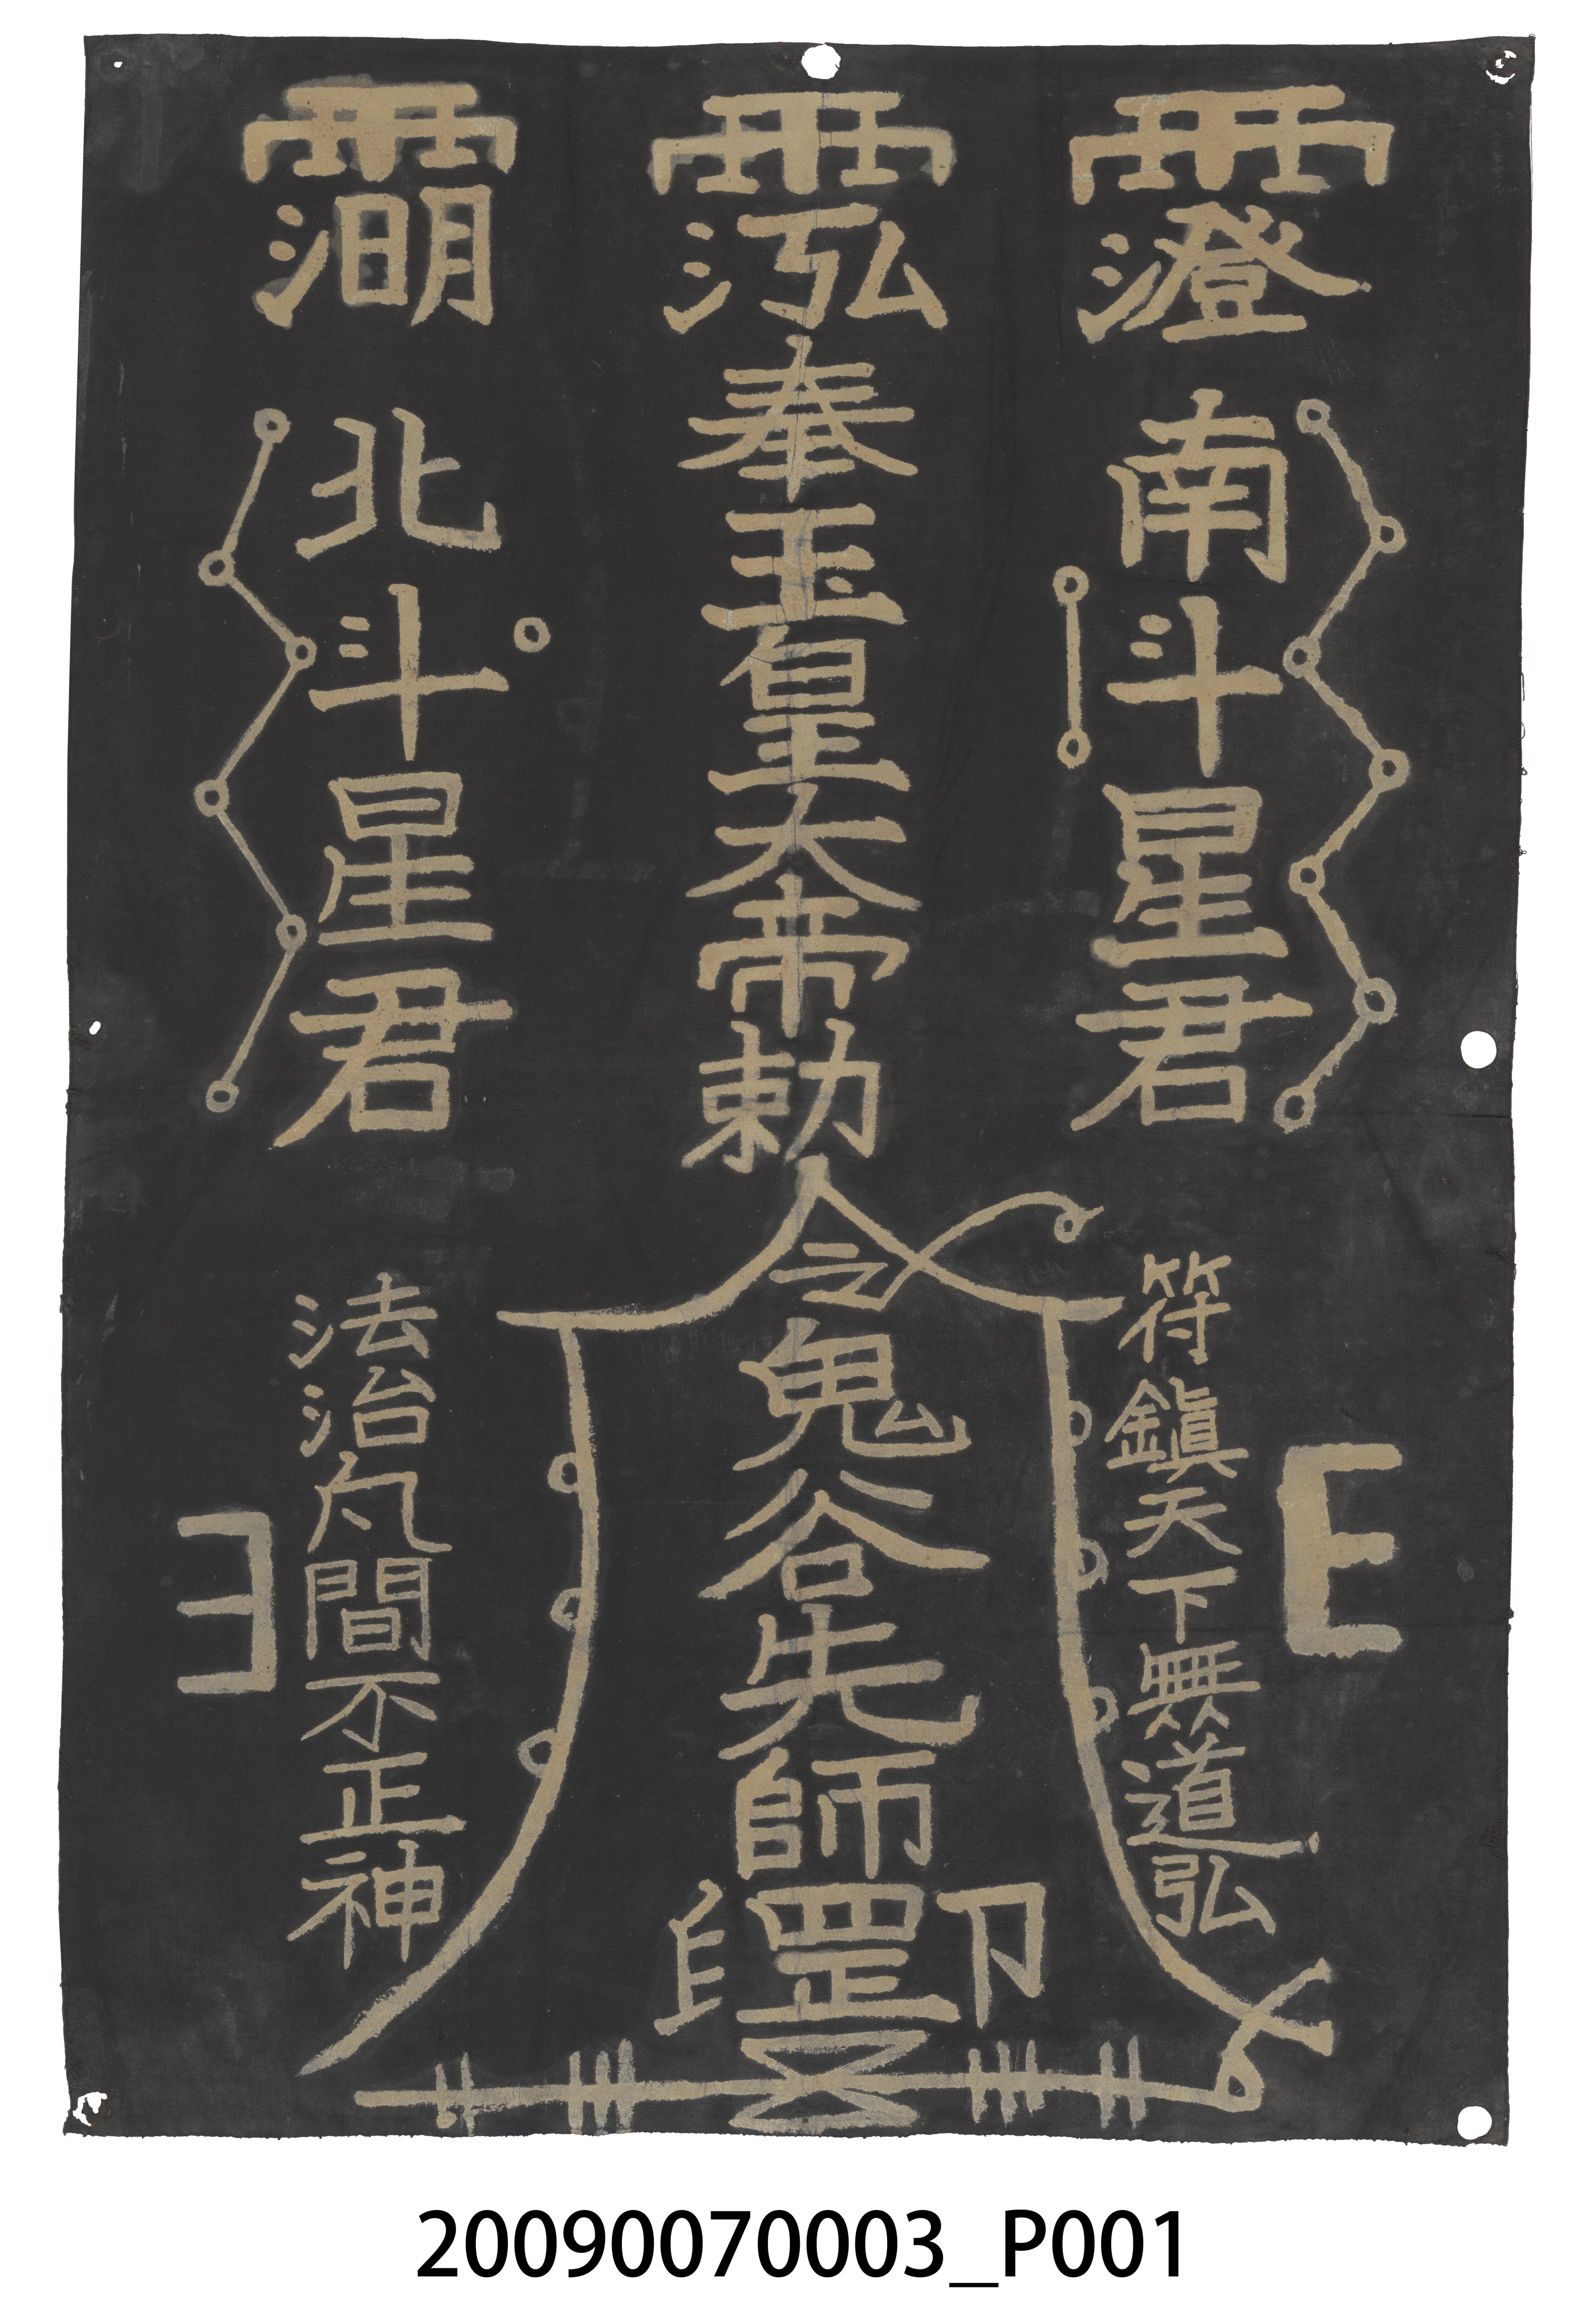 南斗星君
符鎮天下無道弘
奉玉皇大帝勅令鬼谷先師罡印
北斗星君
法治凡間不正神
20090070003_P001